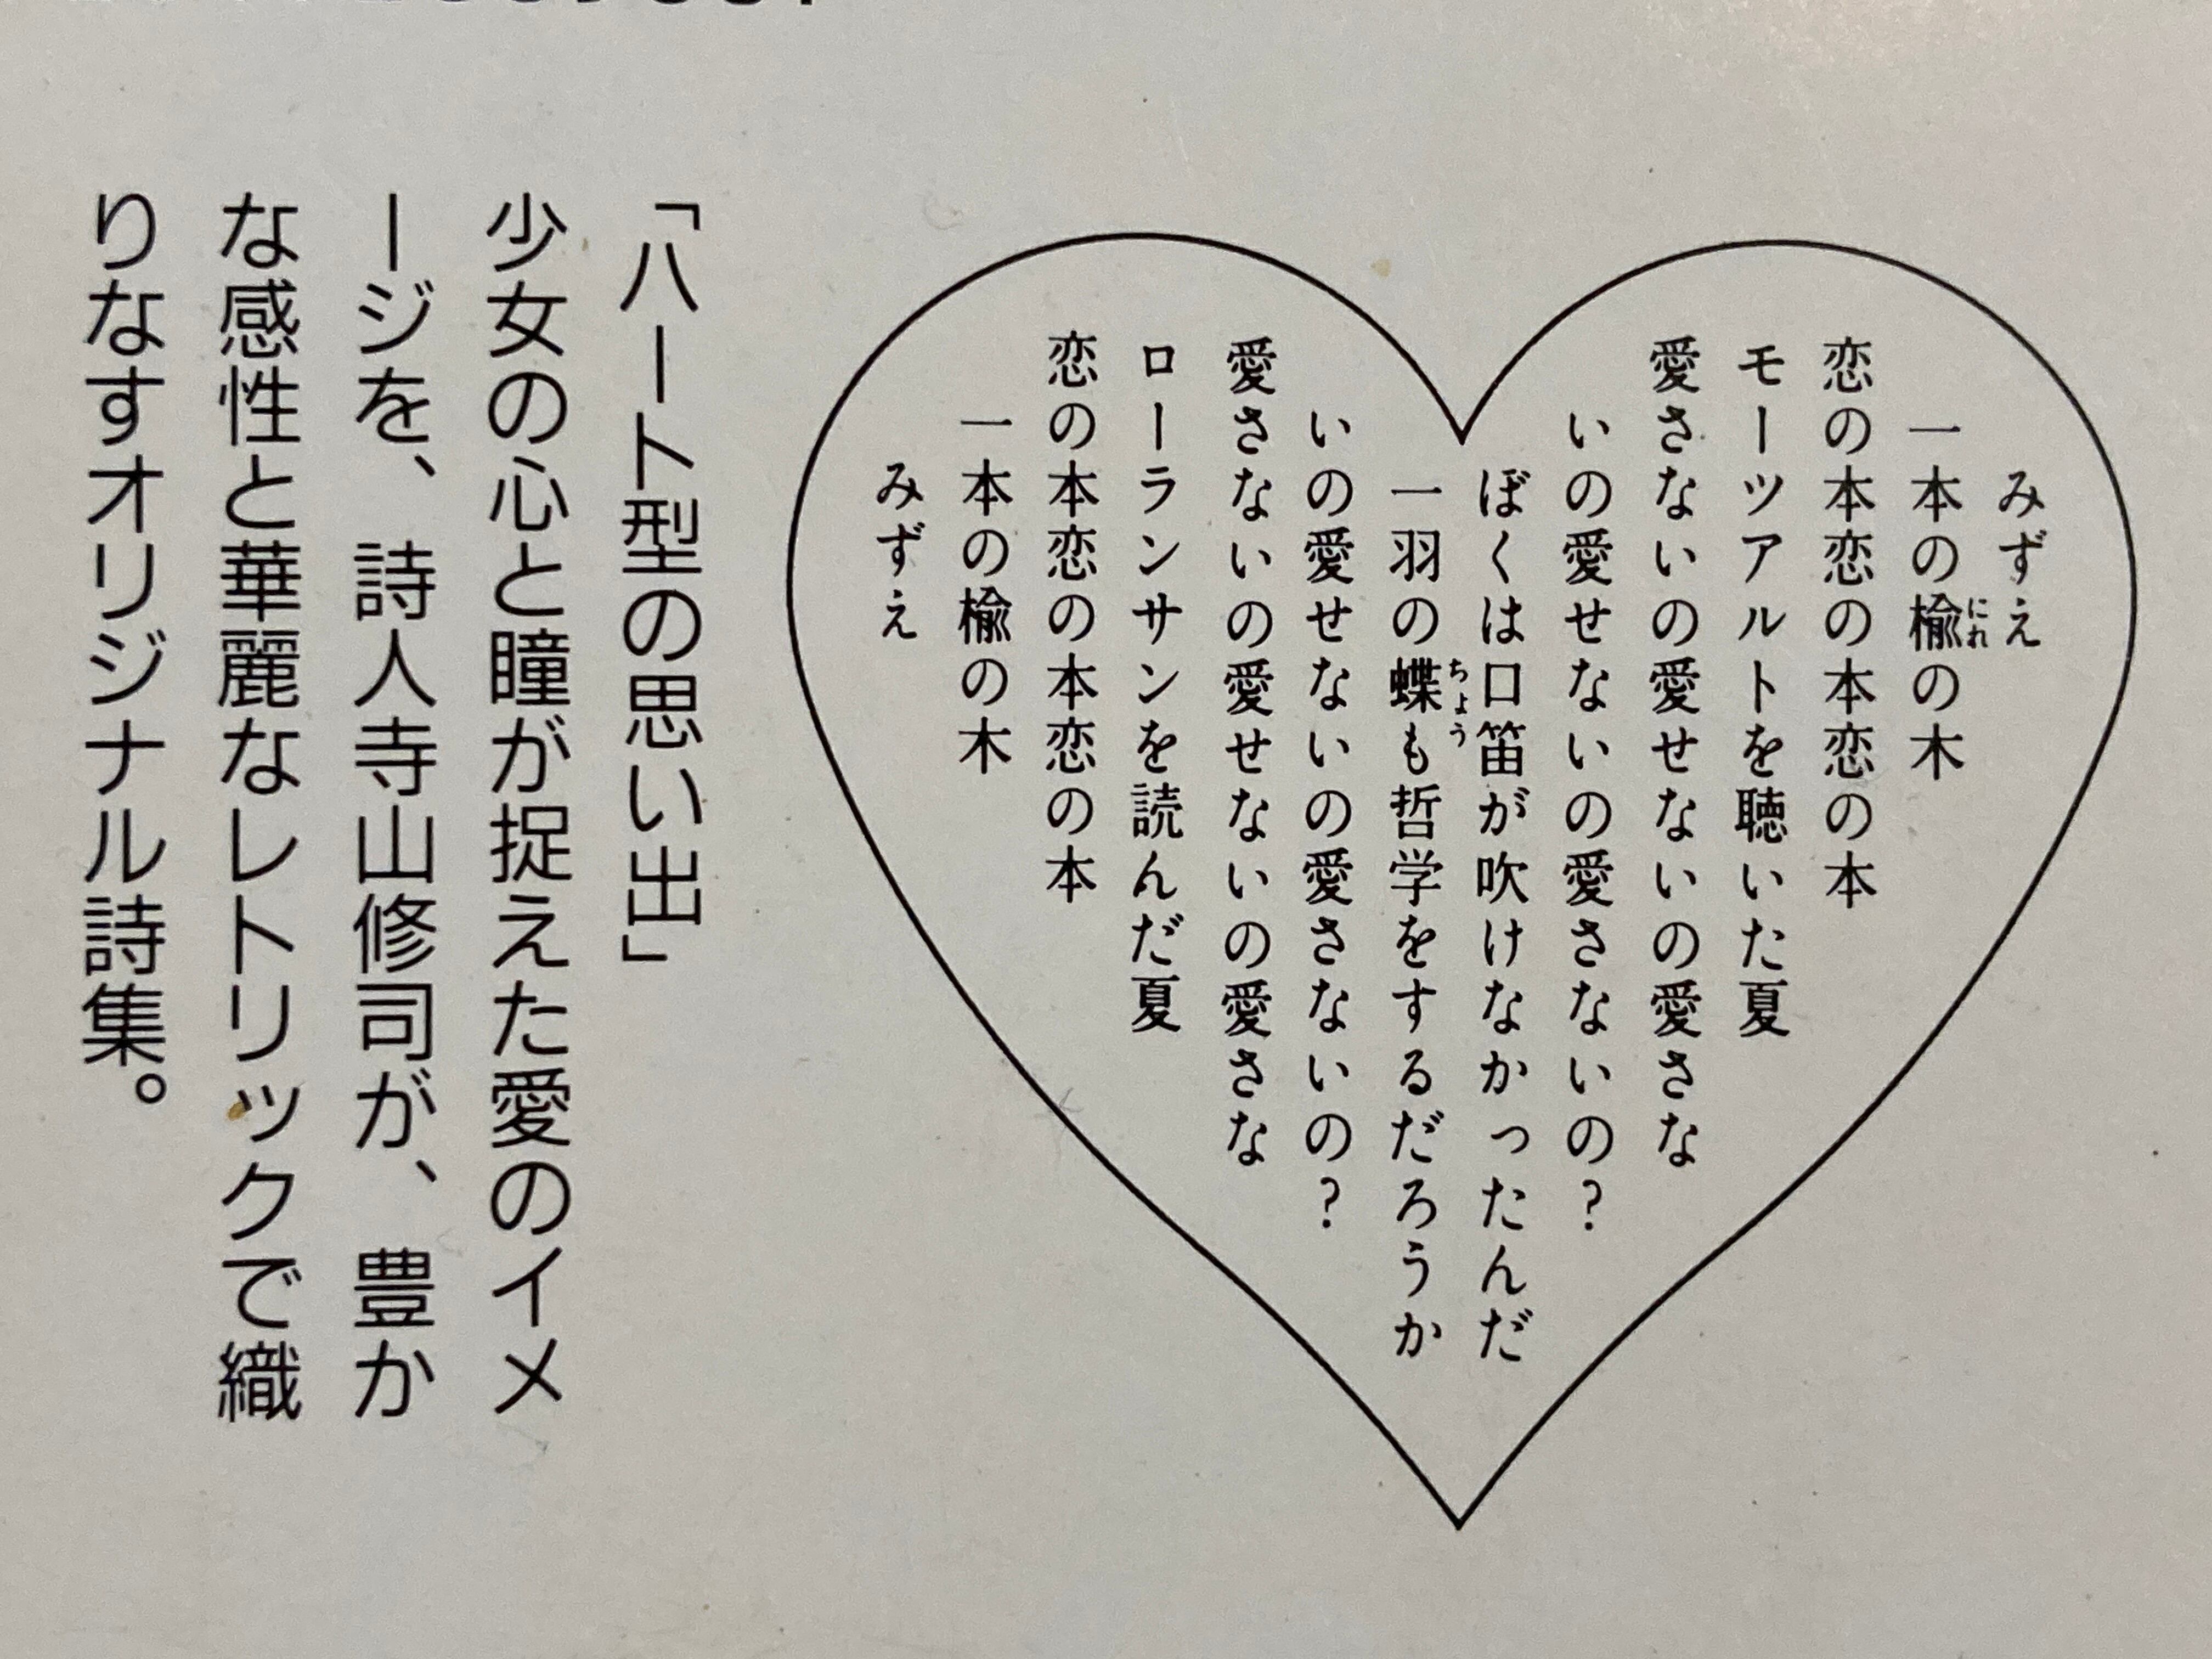 みずえ
一本の楡の木
にれ
恋の本恋の本恋の本
モーツアルトを聴いた夏
愛さないの愛せないの愛さな
いの愛せないの愛さないの？
ぼくは口笛が吹けなかったんだ
一羽の蝶も哲学をするだろうか
ちょう
いの愛せないの愛さないの？
愛さないの愛せないの愛さな
ローランサンを読んだ夏
恋の本恋の本恋の本
一本の楡の木
みずえ
「ハート型の思い出」
少女の心と瞳が捉えた愛のイメ
ージを、詩人寺山修司が、豊か
な感性と華麗なレトリックで織
りなすオリジナル詩集。